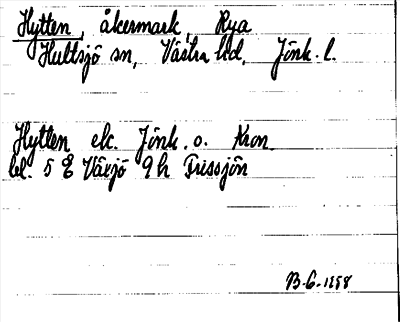 Hytten, åkermark, Rya
Hultsjö sn, Västra hd, Jönk. l.
Hytten ek. Jönk. o. Kron.
bl. 5 E Växjö 9 h Trissjön
B-6-1158